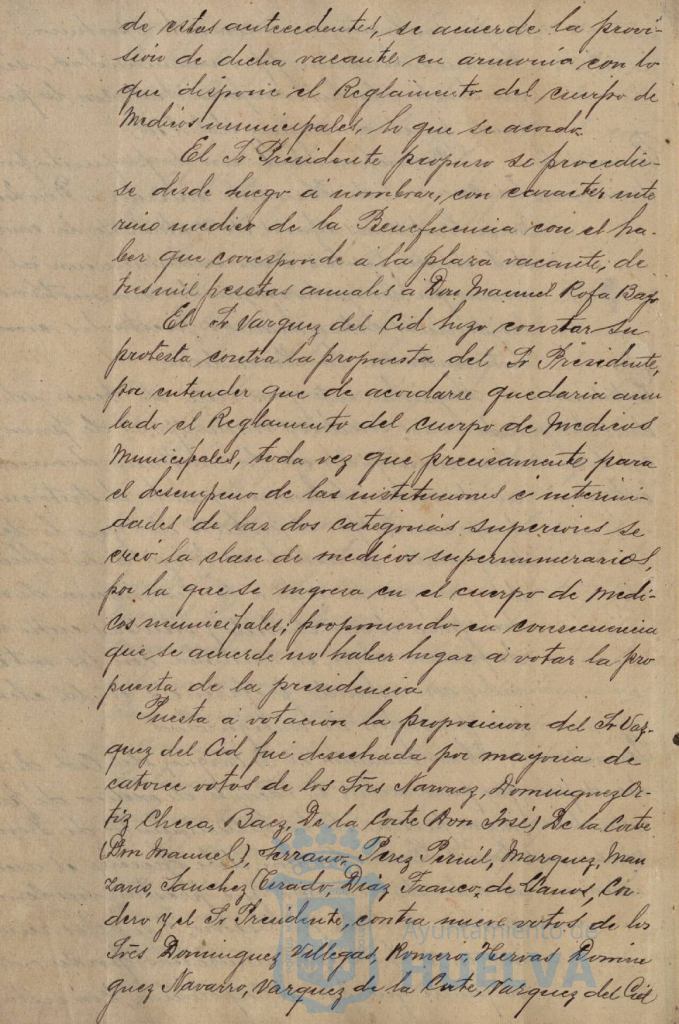 de estos antecedentes, se acuerde la provi-
sión de dicha vacante en armonía con lo
que dispone el Reglamento del cuerpo de
Medicos municipales, lo que se acordo.
El Sr Presidente propuso se procedie-
se desde luego a nombrar, con caracter inte
rino medico de la Beneficencia con el ha-
ber que corresponde a la plaza vacante, de
tres mil pesetas anuales a Don Manuel Rofa
El Sr Vazquez del Cid hizo constar su
protesta contra la propuesta del Sr Presidente,
por entender que de acordarse quedaria anu
lado el Reglamento del cuerpo de Medicos
Municipales, toda vez que precisamente para
el desempeno de las instituciones é interini-
dades de las dos categorias superiores se
creó la clase de medicos supernumerarios,
por la que se ingresa en el cuerpo de medi-
cos municipales; proponiendo en consecuencia
que se acuerde no haber lugar a votar la pro
puesta de la presidencia
Puesta á votacion la proposicion del Sr Vaz-
quez del Cid fué desechada por mayoria de
catorce votos de los Sres Narvaez, Dominguez Or-
tiz Checa, Baez, De la Corte (Don José) De la Corte
(Don Manuel), Serrano, Perez Marquez, Man
zano, Sanchez Tirado, Diaz Franco, de Llanos, Cor-
dero y el Sr Presidente, contra nueve votos de los
Sres Dominguez Villegas, Romero, Hervas, Domin
guez Navarro, Vazquez de la Corte, Vazquez del Cid
Ayuntamiento de
HUELVA